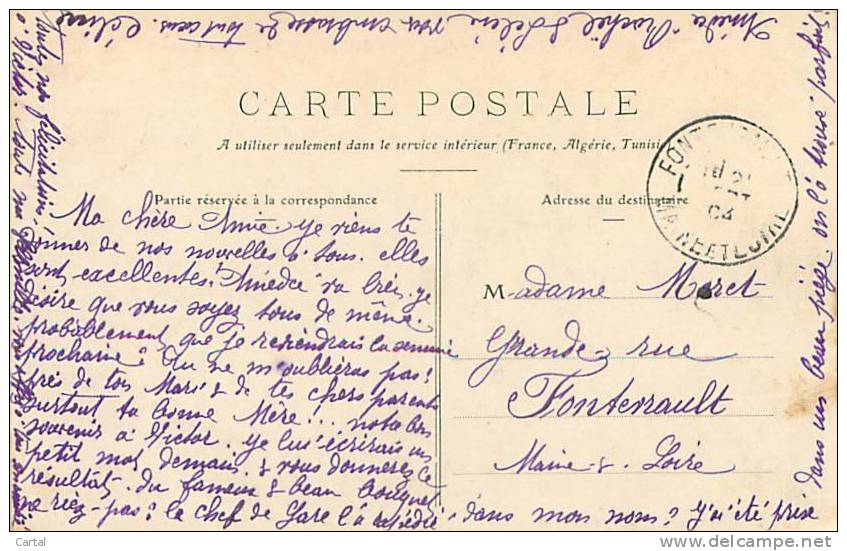 Amédée Rachel & Céline vous embrasse de tout cœur. Céline
CARTE POSTALE
A utiliser seulement dans le service intérieur (France, Algérie, Tunisie
Partie réservée à la correspondance
Adresse du destinataire
Ma chère Amie. je viens te
donner de nos nouvelles à tous. elles
sont excellentes! Amédée va bien. je
désire que vous soyez tous de même.
probablement que je reviendrais la semaine
prochaine? Tu ne m'oublieras pas!
près de ton Mari & de tes chers parents
surtout ta bonne Mère!... notre bon
souvenir à Victor. je lui écrirais un
petit mot demain. & vous donnerez ce
résultat. du fameux & beau bouquet
ne riez-pas? le chef de gare l'a expédié
dans mon nom? J'ai été prise
dans un beau piège. on l'a trouvé parfait
toutes nos félicitations!
à Victor. toute ma
Madame Moret
Grande rue
Fontevrault
Maine & Loire
FONTEVRAULT
04
MAINE ET LOIRE
© Cartal
delcampe.net